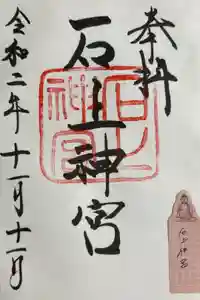 奉拝
石上神宮
令和二年十一月十一日
石上神宮